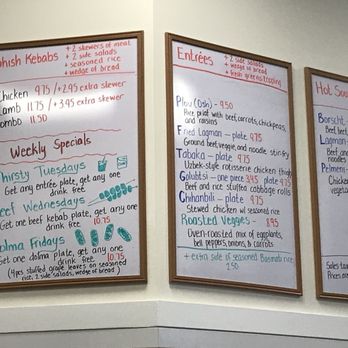 hish Kebabs
+ 2 skewers of meat
+ 2 side salads
+ seasoned rice
+ wedge of bread
Chicken 9.75 /+2.95 extra skewer
Lamb 11.75 /+3.95 extra skewer
ombo 11.50
Weekly Specials
Thirsty Tuesdays
Get any entrée plate, get any one
drink free
Beef Wednesdays
Get one beef kebab plate, get any one
drink free 10.75
Dolma Fridays
Get one dolma plate, get any one
drink free 10.75
(4pcs stuffed grape leaves on seasoned
rice, 2 side salads, wedge of bread)
Entrées
+ 2 side salads
+ wedge of bread
+ fresh greens topping
Plov (Osh) - 9.50
Rice pilaf with beef, carrots, chickpeas,
and raisins
Fried Lagman - plate 9.75
Ground beef, veggie, and noodle stirfry
Tabaka - plate 9.75
Uzbek-style rotisserie chicken thigh
Golubtsi - one piece 3.95 plate 9.75
Beef and rice stuffed cabbage rolls
Chihanbili - plate 9.75
Stewed chicken w/ seasoned rice
Roasted Veggies - 8.95
Oven-roasted mix of eggplants,
bell peppers, onions, & carrots
+ extra side of seasoned Basmati rice
2.50
Hot Sou
Borscht
Beef
Lagman
Beef
noodle
Pelmeni
Chicken
vegeta
Sales tax